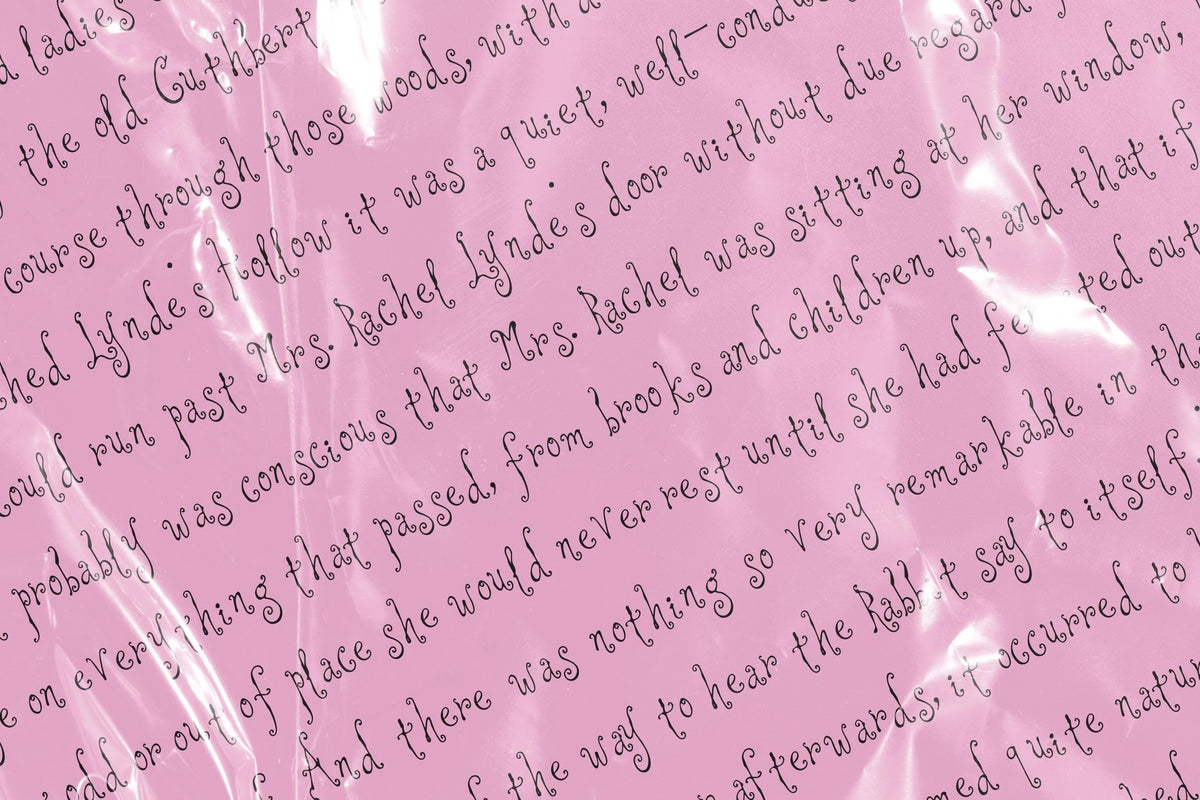 ladies
the old Cuthbert
course through those woods, with a
Lynde's Hollow it was a quiet, well-conduc
could run past Mrs. Rachel Lynde's door without due regard
probably was conscious that Mrs. Rachel was sitting at her window,
on everything that passed, from brooks and children up, and that if
odd or out of place she would never rest until she had out
And there was nothing so very remarkable in
the way to hear the Rabbit say to itself,
afterwards, it occurred to
med quite natur